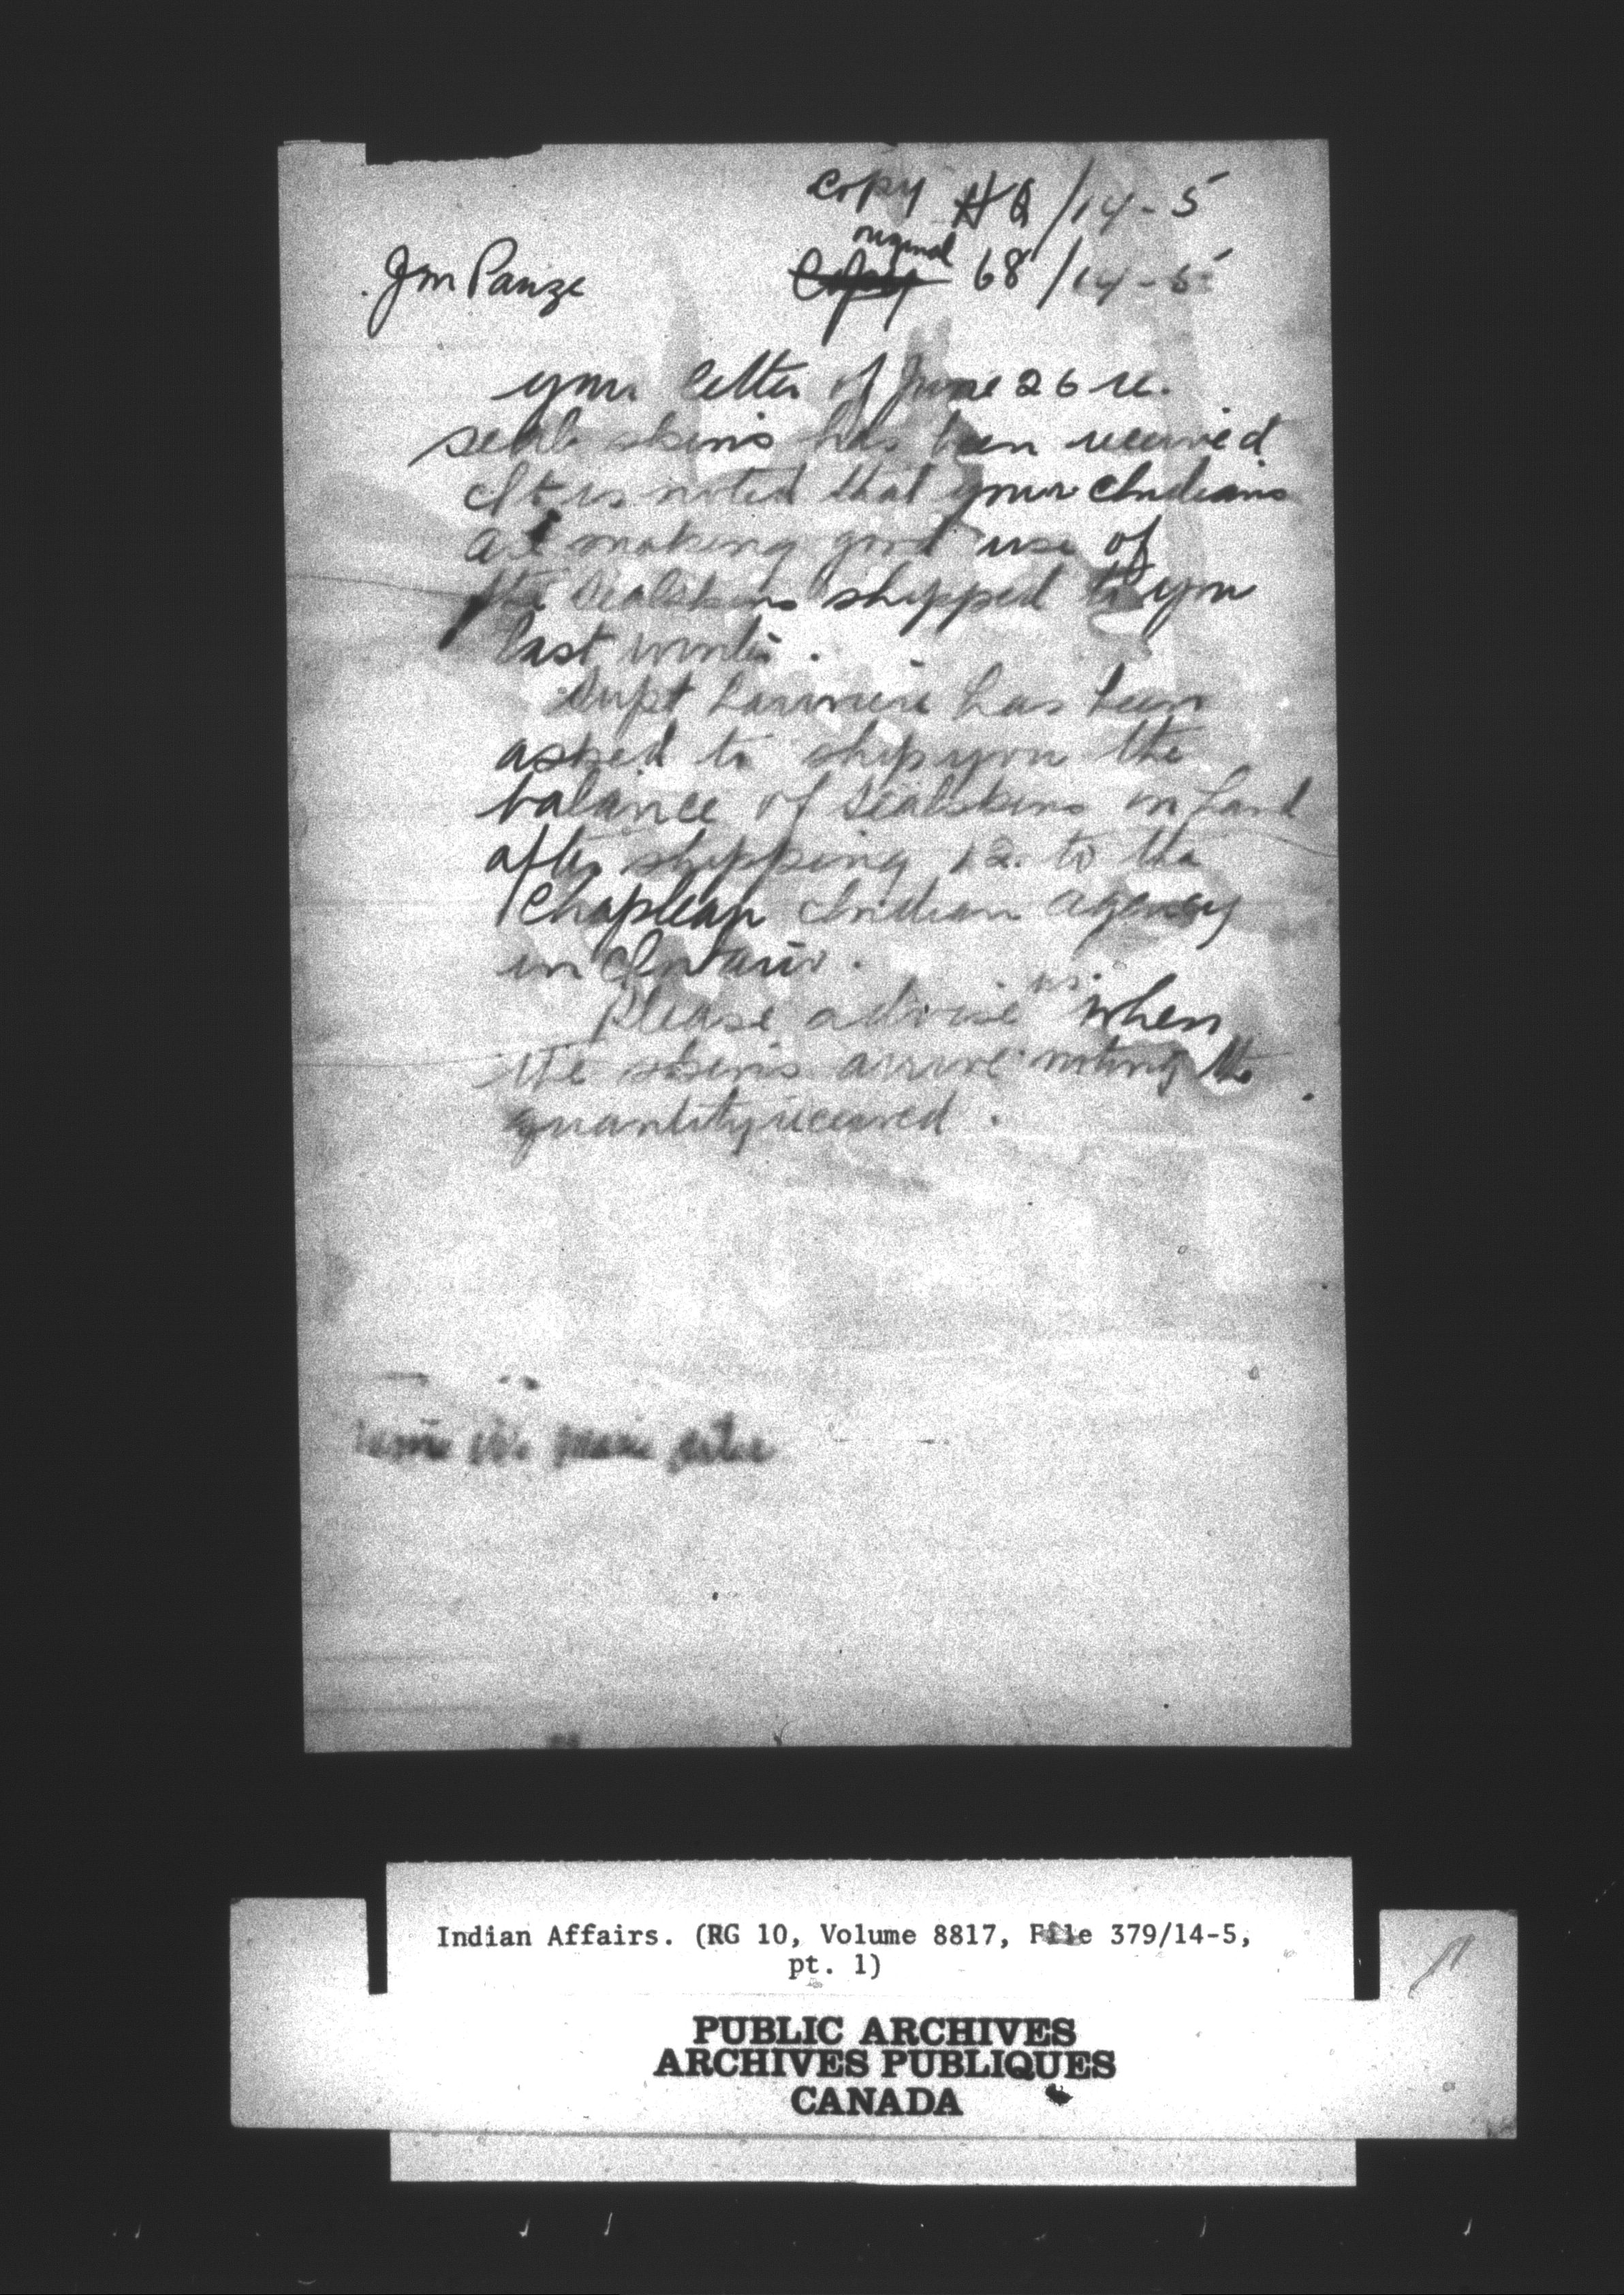 copy HQ/14-5
original
Jim Pauze Copy 68/14-5
your letter of June 26 re.
seal skins has been received
It is noted that your Indians
are making good use of
the sealskins shipped to you
last winter.
Supt Lariviere has been
asked to ship you the
balance of sealskins on hand
after shipping 12 to the
Chapleau Indian Agency
in Ontario.
Please advise us when
the skins arrive noting the
quantity received.
Indian Affairs. (RG 10, Volume 8817, File 379/14-5,
pt. 1)
PUBLIC ARCHIVES
ARCHIVES PUBLIQUES
CANADA